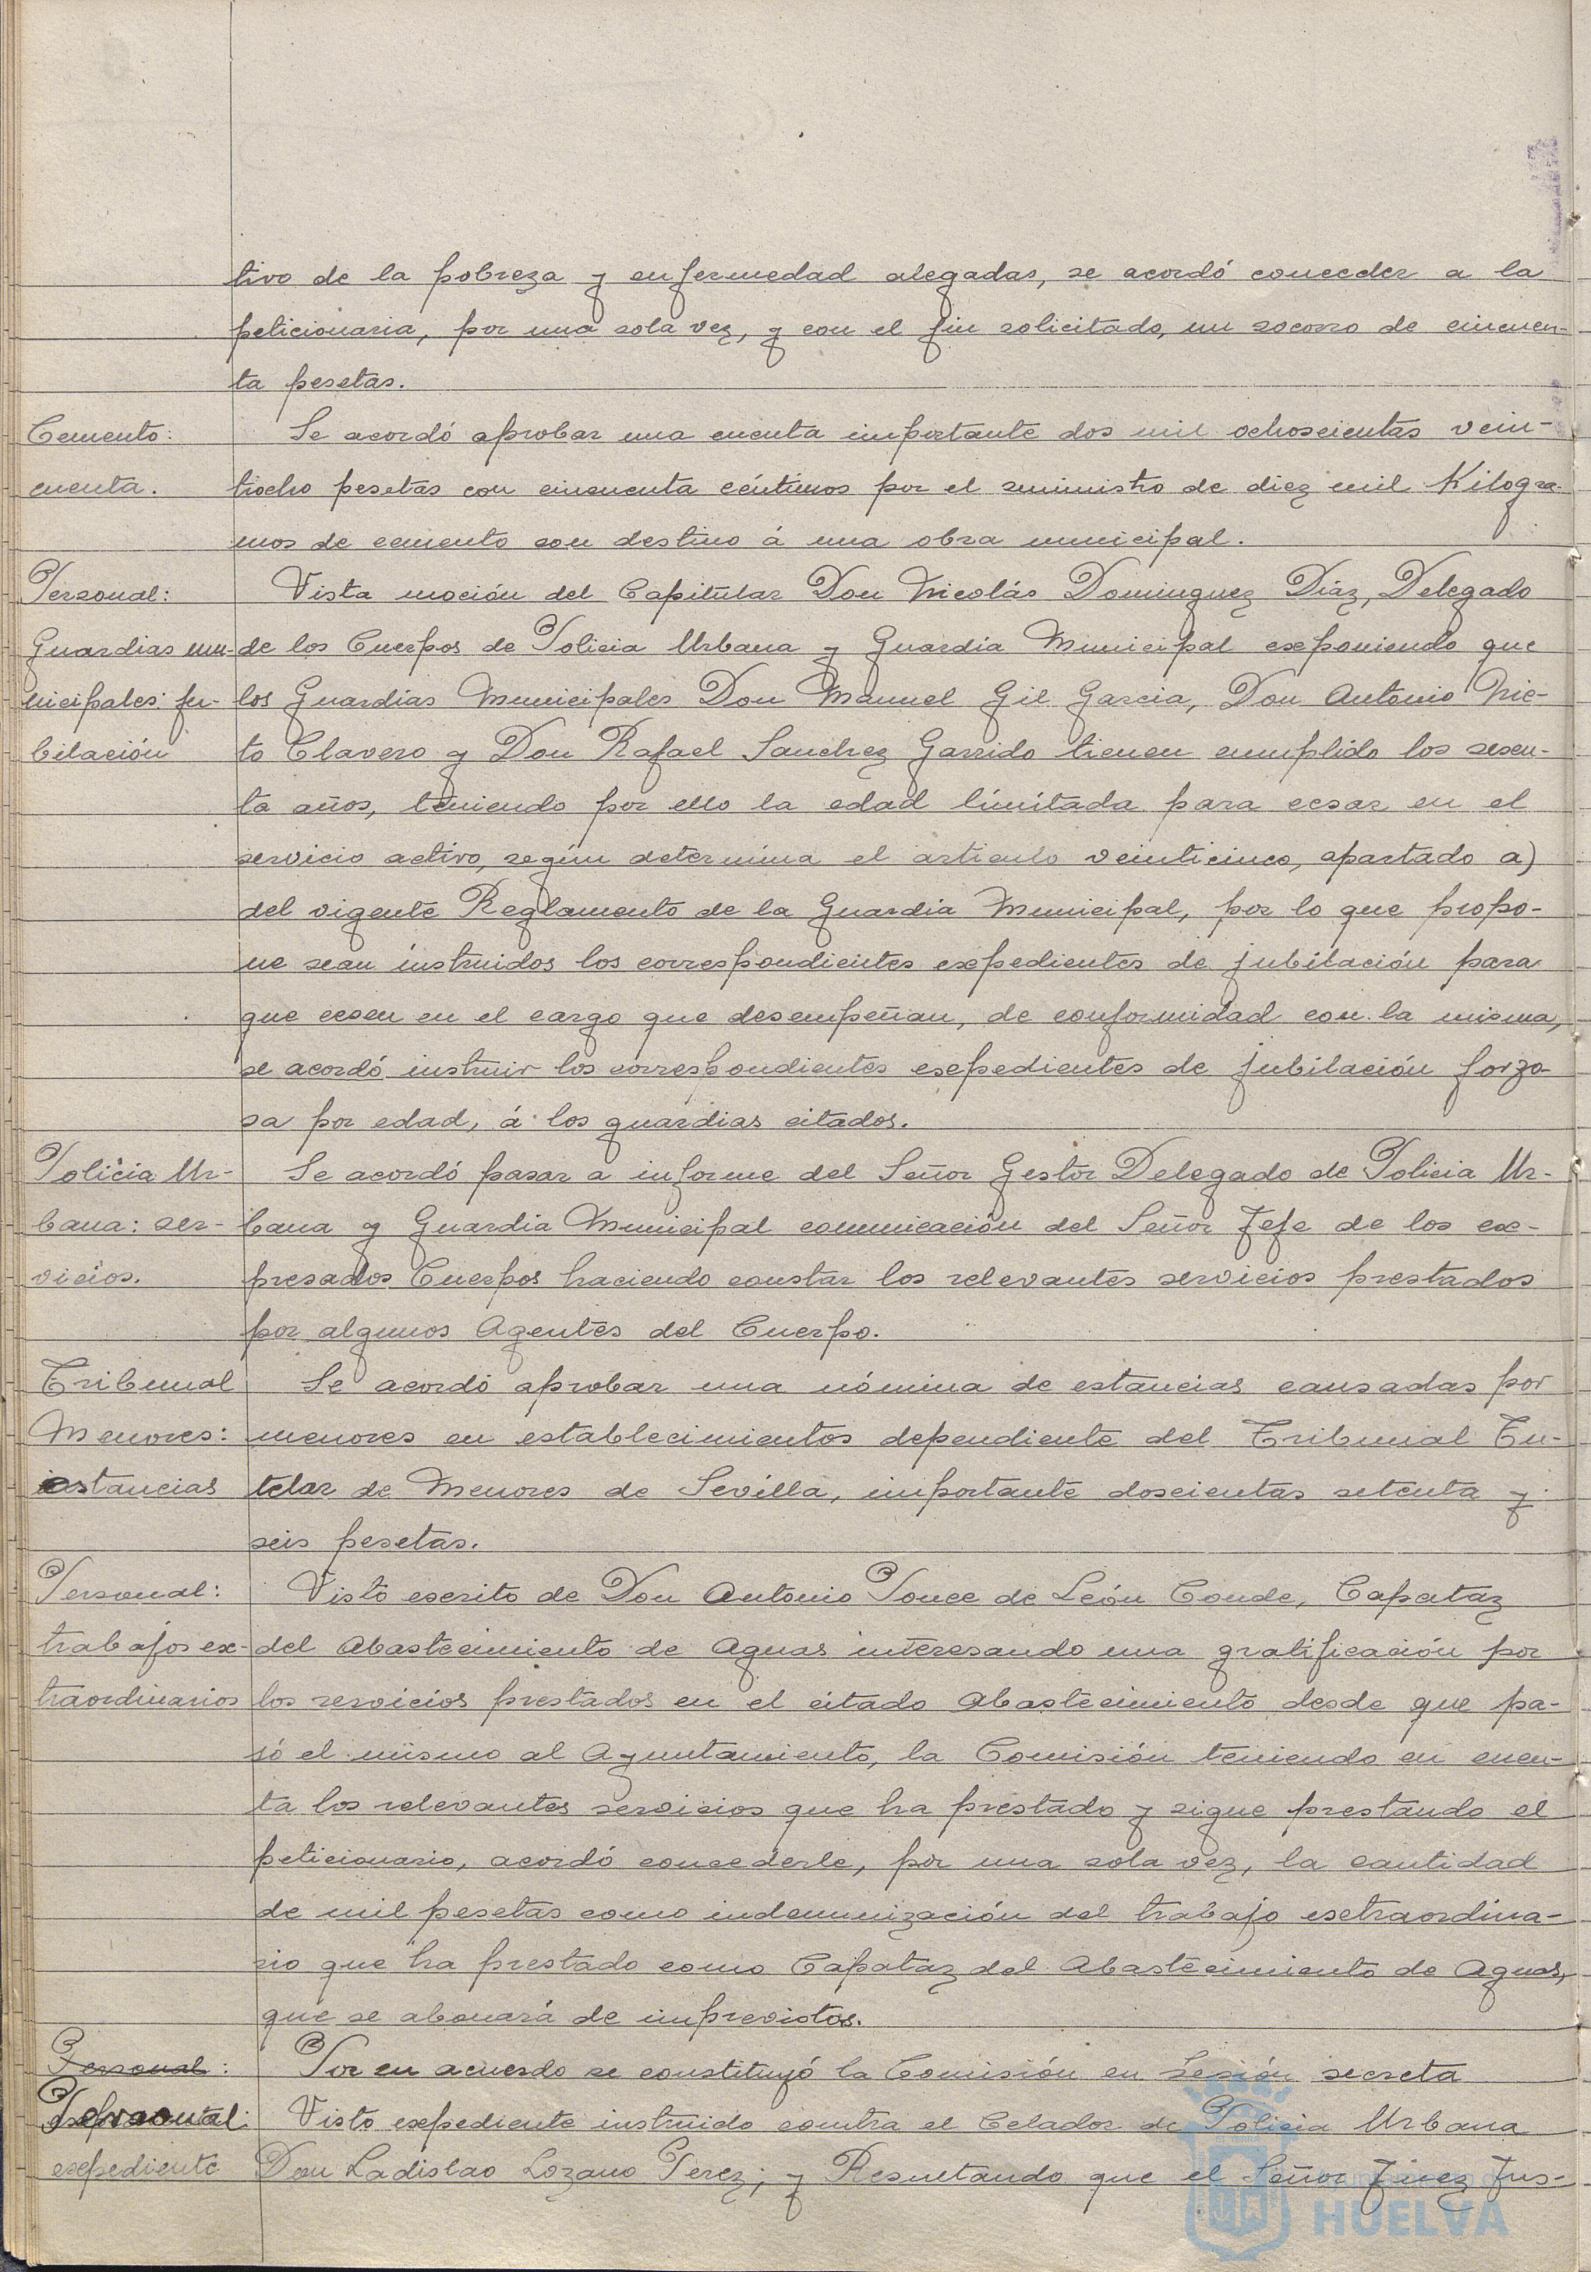 tivo de la pobreza y enfermedad alegadas, se acordó conceder a la
peticionaria, por una sola vez, y con el fin solicitado, un socorro de cincuen-
ta pesetas.
Cemento: Se acordó aprobar una cuenta importante dos mil ochoscientas vein-
cuenta. tiocho pesetas con cincuenta céntimos por el suministro de diez mil Kilogra-
mos de cemento con destino á una obra municipal.
Personal: Vista moción del Capitular Don Nicolás Dominguez Díaz, Delegado
Guardias mu- de los Cuerpos de Policia Urbana y Guardia Municipal exponiendo que
nicipales: ju- los Guardias Municipales Don Manuel Gil Garcia, Don Antonio Nie-
bilación to Clavero y Don Rafael Sanchez Garrido tienen cumplido los sesen-
ta años, teniendo por ello la edad limitada para cesar en el
servicio activo, según determina el articulo veinticinco, apartado a)
del vigente Reglamento de la Guardia Municipal, por lo que propo-
ne sean instruidos los correspondientes expedientes de jubilación para
que cesen en el cargo que desempeñan, de conformidad con la misma,
se acordó instruir los correspondientes expedientes de jubilación forzo-
sa por edad, á los guardias citados.
Policia Ur- Se acordó pasar a informe del Señor Gestor Delegado de Policia Ur-
bana: ser- bana y Guardia Municipal comunicación del Señor Jefe de los ex-
vicios. presados Cuerpos haciendo constar los relevantes servicios prestados
por algunos Agentes del Cuerpo.
Tribunal Se acordó aprobar una nómina de estancias causadas por
Menores: menores en establecimientos dependiente del Tribunal Tu-
estancias telar de Menores de Sevilla, importante doscientas setenta y
seis pesetas.
Personal: Visto escrito de Don Antonio Ponce de León Conde, Capataz
trabajos ex- del Abastecimiento de Aguas interesando una gratificación por
traordinarios los servicios prestados en el citado Abastecimiento desde que pa-
só el mismo al Ayuntamiento, la Comisión teniendo en cuen-
ta los relevantes servicios que ha prestado y sigue prestando el
peticionario, acordó concederle, por una sola vez, la cantidad
de mil pesetas como indemnización del trabajo extraordina-
rio que ha prestado como Capataz del Abastecimiento de Aguas,
que se abonará de imprevistos.
Personal: Por en acuerdo se constituyó la Comisión en Sesión secreta
Personal: Visto expediente instruido contra el Celador de Policia Urbana
expediente Don Ladislao Lozano Perez; y Resultando que el Señor Juez Jus-
HUELVA